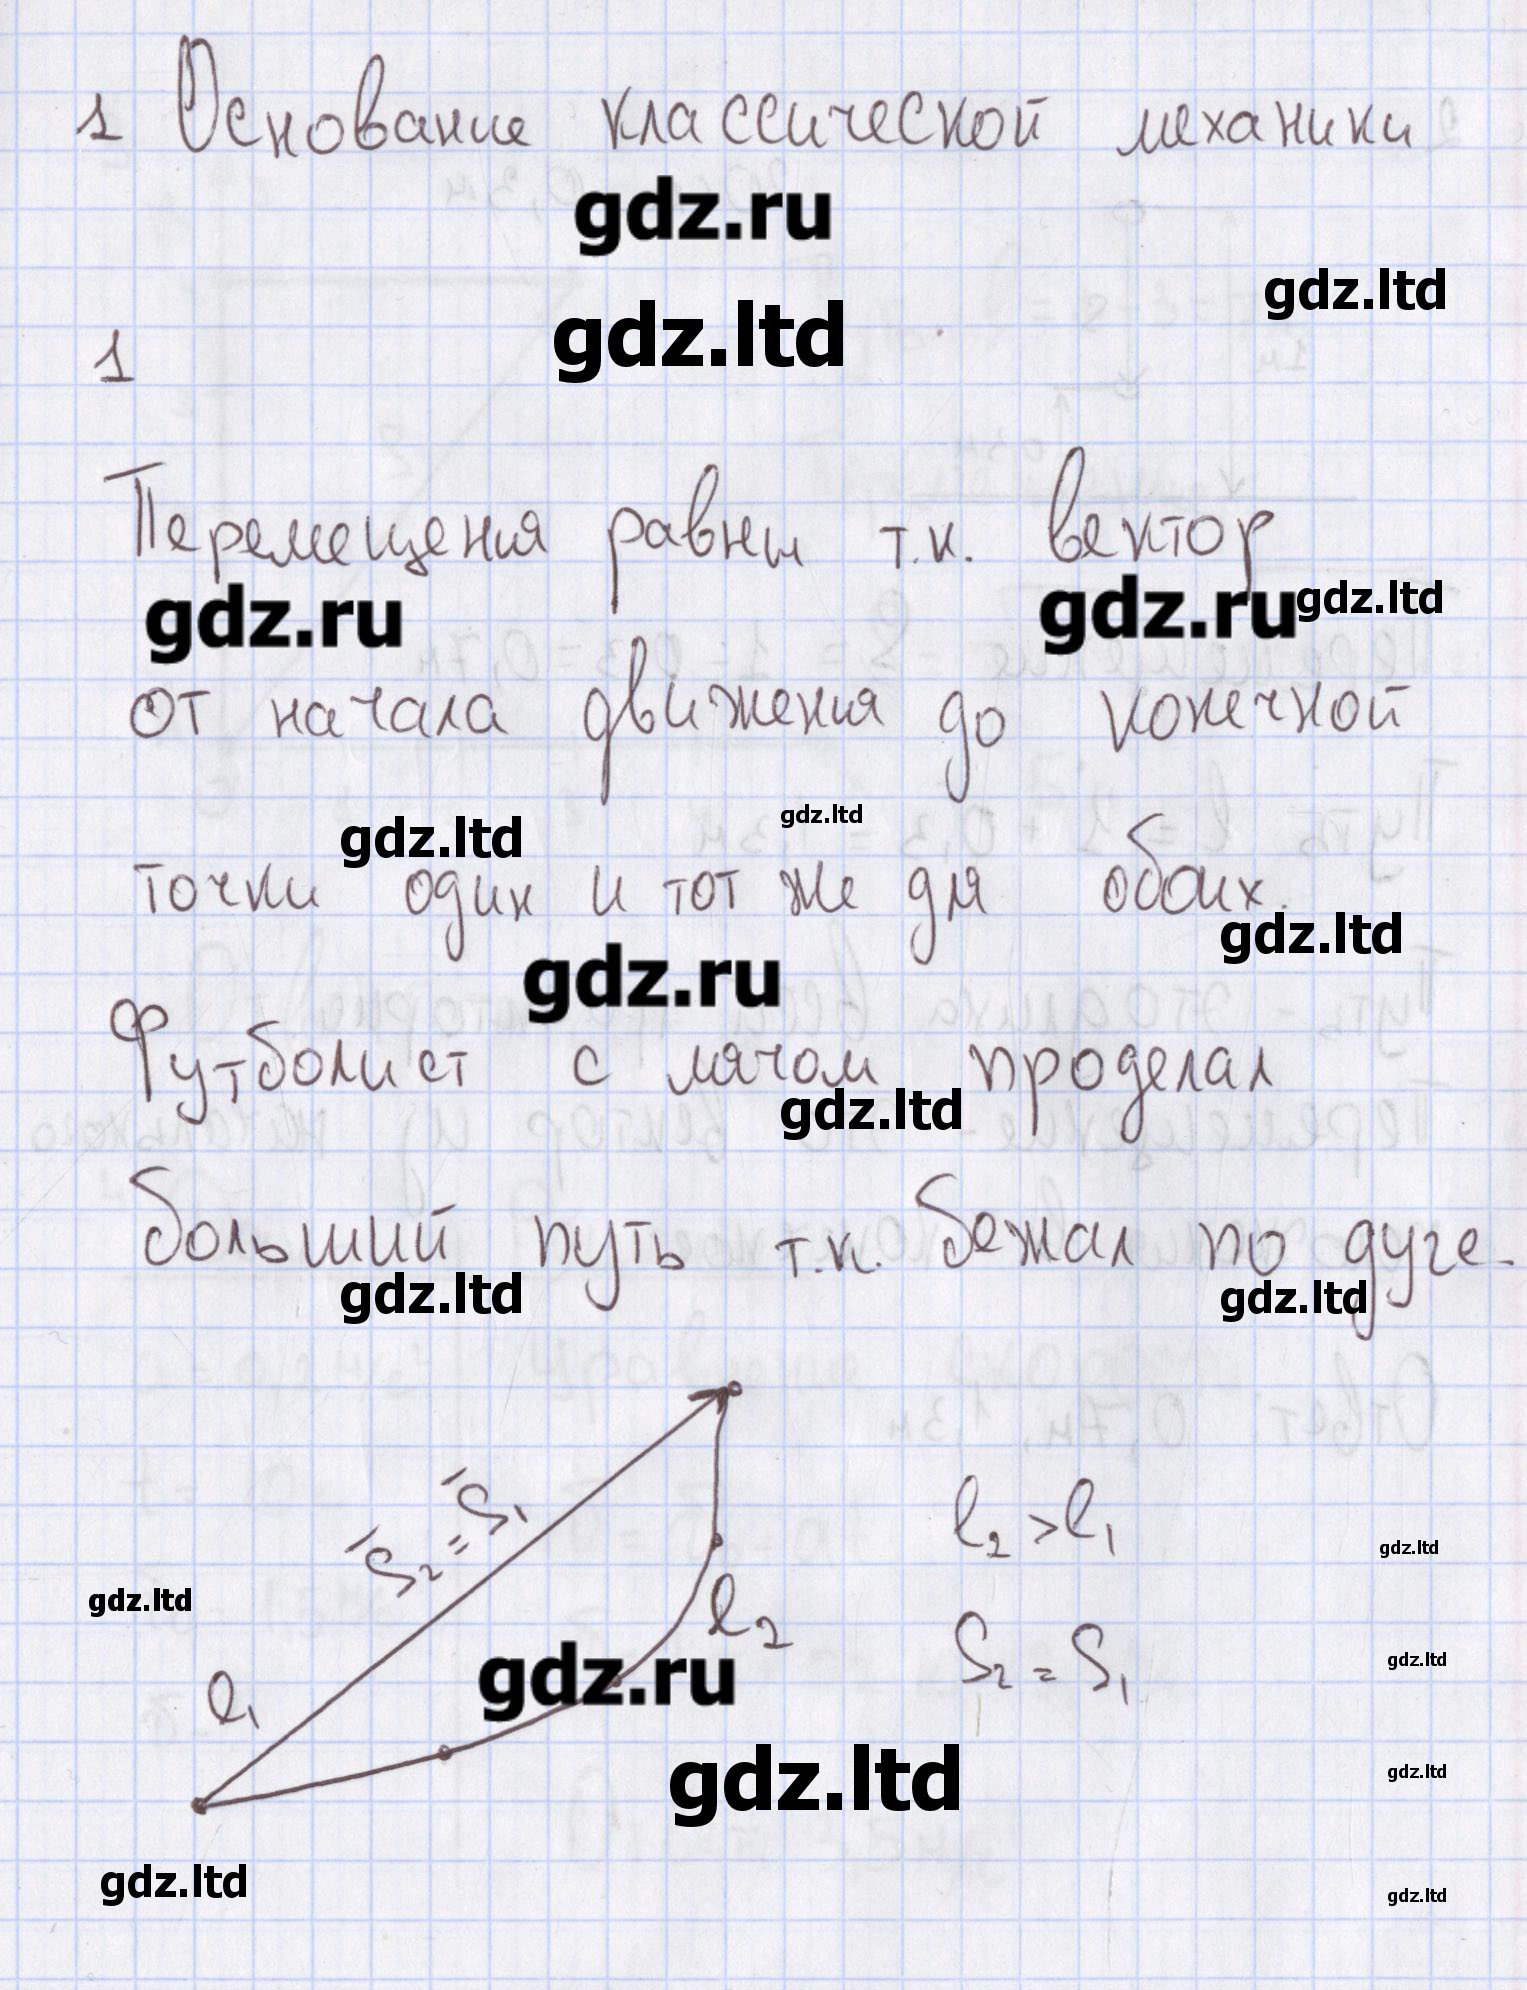 1 Основание классической механики
gdz.ru
gdz.ltd
gdz.ltd
1
Перемещения равны т.к. вектор
gdz.ru
gdz.ru
gdz.ltd
от начала движения до конечной
gdz.ltd
gdz.ltd
точки один и тот же для обоих.
gdz.ltd
gdz.ru
Футболист с мячом проделал
gdz.ltd
больший путь т.к. бежал по дуге.
gdz.ltd
gdz.ltd
S₂ = S₁
l₂ > l₁
gdz.ltd
gdz.ltd
l₂
S₂ = S₁
gdz.ltd
l₁
gdz.ru
gdz.ltd
gdz.ltd
gdz.ltd
gdz.ltd